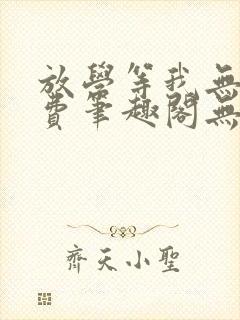 放學等我無
費筆趣閣無
齊天小聖